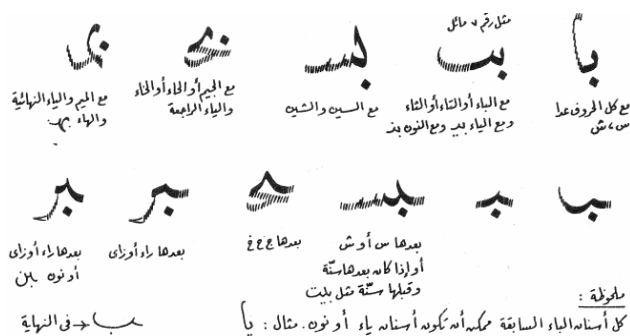 مثل رقم ٧ مائل
با
بب
بس
بج
بم
مع كل الحروف عدا
س، ش
مع الباء أو التاء أو الثاء
ومع الياء ببـ ومع النون بنـ
مع السين والشين
مع الجيم أو الحاء أو الخاء
والياء الراجعة
مع الميم والياء النهائية
والهاء بهـ
ب
بـ
بس
ح
بر
بر
بعدها س أو ش
أو إذا كان بعدها سنّة
وقبلها سنّة مثل بليت
بعدها ج ح خ
بعدها راء أو زاى
بعدها راء أو زاى
أو نون بن
ملحوظة :
كل أسنان الباء السابقة ممكن أن تكون أسنان ياء أو نون. مثال : يا
ـب في النهاية